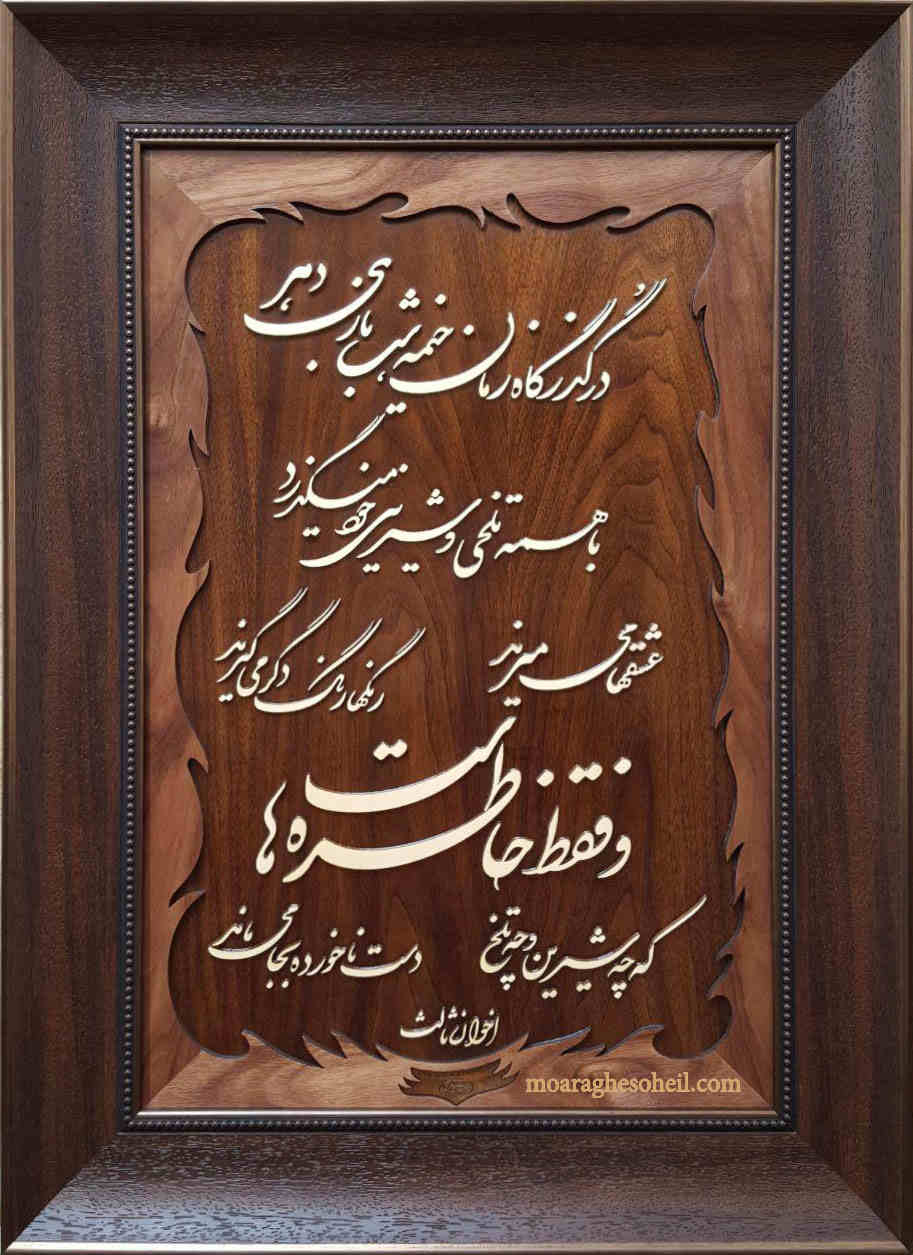 در گذرگاه زمان خیمه شب بازی دهر
با همه تلخی و شیرینی خود میگذرد
عشقها می میرند رنگها رنگ دگر می گیرند
و فقط خاطره هاست
که چه شیرین و چه تلخ دست ناخورده بجا می ماند
اخوان ثالث
moaraghesoheil.com